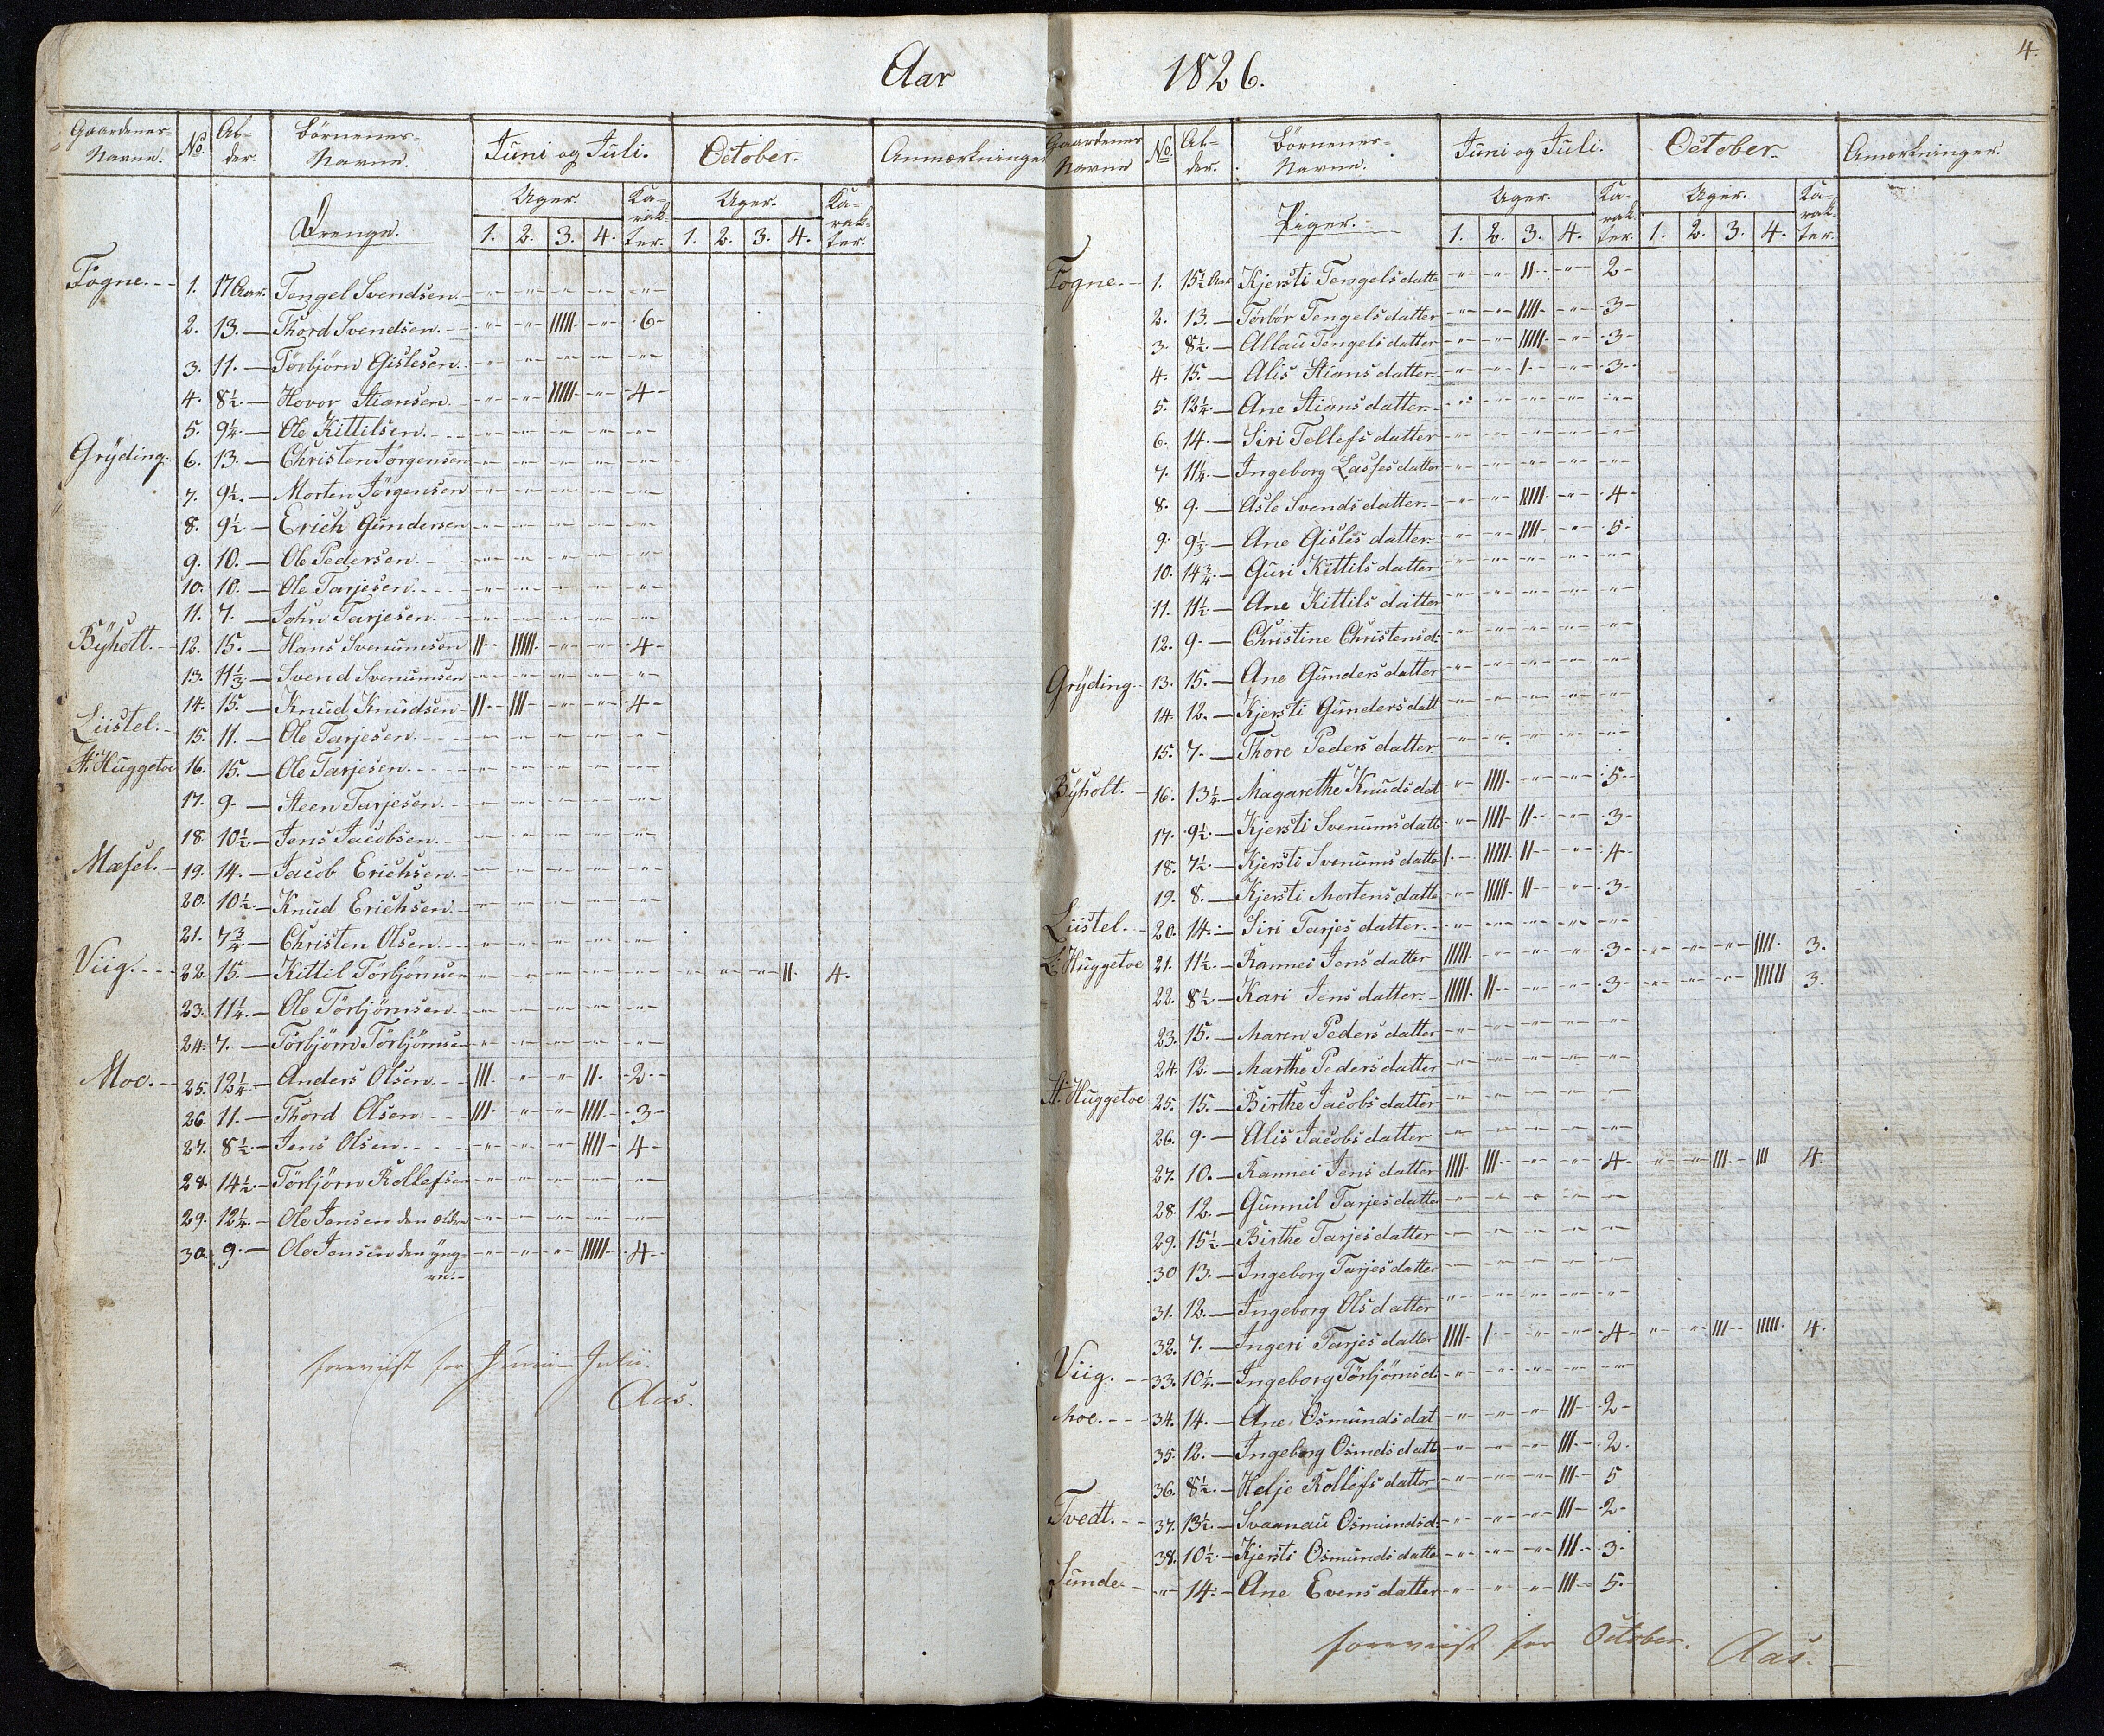 Aar 1826.
4.
Gaardenes Navne. No. Alder. Børnenes Navne. Juni og Juli. October. Anmærkninger
Uger. Karakter. Uger. Karakter.
Drenge. 1. 2. 3. 4. 1. 2. 3. 4.
Fogne. 1. 17 Aar. Tengel Svendsen. -"- -"- -"- -"- -"-
2. 13. Thord Svendsen. -"- -"- IIIII -"- 6
3. 11. Torbjørn Gislesen. -"- -"- -"- -"- -"-
4. 8½. Hovor Stiansen. -"- -"- IIIII -"- 4
5. 9¼. Ole Kittilsen. -"- -"- -"- -"- -"-
Grÿding. 6. 13. Christen Jörgensen -"- -"- -"- -"- -"-
7. 9½. Morten Jörgensen -"- -"- -"- -"- -"-
8. 9½ Erich Gundersen -"- -"- -"- -"- -"-
9. 10. Ole Pedersen. -"- -"- -"- -"- -"-
10. 10. Ole Tarjesen. -"- -"- -"- -"- -"-
11. 7. John Tarjesen. -"- -"- -"- -"- -"-
Bÿholt. 12. 15. Hans Svenumsen II IIIII -"- -"- 4
13. 11⅓ Svend Svenumsen -"- -"- -"- -"- -"-
14. 15. Knud Knudsen II III -"- -"- 4
Liistel. 15. 11. Ole Tarjesen. -"- -"- -"- -"- -"-
St. Huggetoe 16. 15. Ole Tarjesen. -"- -"- -"- -"- -"-
17. 9. Steen Tarjesen. -"- -"- -"- -"- -"-
18. 10½ Jens Jacobsen. -"- -"- -"- -"- -"-
Mæsel. 19. 14. Jacob Erichsen. -"- -"- -"- -"- -"-
20. 10½. Knud Erichsen. -"- -"- -"- -"- -"-
21. 7¾ Christen Olsen. -"- -"- -"- -"- -"-
Viig. 22. 15. Kittil Törbjörnsen -"- -"- -"- -"- -"- -"- -"- -"- II 4.
23. 11¼. Ole Törbjörnsen. -"- -"- -"- -"- -"-
24. 7. Törbjörn Törbjörnsen -"- -"- -"- -"- -"-
Moe. 25. 12¼ Anders Olsen. III -"- -"- II 2
26. 11. Thord Olsen. III -"- -"- IIII 3
27. 8½. Jens Olsen. -"- -"- -"- IIII 4
28. 14½. Törbjörn Rollefsen -"- -"- -"- -"- -"-
29. 12¼. Ole Jensen den ældre -"- -"- -"- -"- -"-
30. 9. Ole Jensen den yng- -"- -"- -"- IIIII 4
re.
foreviist for Junii-Julii.
Aas.
Gaardenes Navne No. Alder. Børnenes Navne. Juni og Juli. October. Anmærkninger.
Uger. Karakter. Uger. Karakter.
Piger. 1. 2. 3. 4. 1. 2. 3. 4.
Fogne. 1. 15½ Aar Kjersti Tengelsdatte -"- -"- II -"- 2
2. 13. Torbør Tengelsdatter -"- -"- IIII -"- 3
3. 8½. Allau Tengelsdatter -"- -"- IIIII -"- 3
4. 15. Alis Stiansdatter. -"- -"- I -"- 3
5. 12¼. Ane Stiansdatter. -"- -"- -"- -"- -"-
6. 14. Siri Tellefsdatter -"- -"- -"- -"- -"-
7. 11¼. Ingeborg Lassesdatter -"- -"- -"- -"- -"-
8. 9. Asle Svendsdatter. -"- -"- IIIII -"- 4
9. 9⅓ Ane Gislesdatter. -"- -"- IIII -"- 5
10. 14¾. Guri Kittilsdatter -"- -"- -"- -"- -"-
11. 11½. Ane Kittilsdatter -"- -"- -"- -"- -"-
12. 9. Christine Christensd: -"- -"- -"- -"- -"-
Grÿding. 13. 15. Ane Gundersdatter -"- -"- -"- -"- -"-
14. 12. Kjersti Gundersdatt -"- -"- -"- -"- -"-
15. 7. Thore Pedersdatter -"- -"- -"- -"- -"-
Bÿholt. 16. 13¼. Magarethe Knudsdat -"- IIII -"- -"- 5
17. 9½. Kjersti Svenumsdatt -"- IIII II -"- 3
18. 7½. Kjersti Svenumsdatte I IIIII II -"- 4
19. 8. Kjersti Mortensdatte -"- IIIII II -"- 3
Liistel. 20. 14. Siri Tarjesdatter. -"- -"- -"- -"- -"-
L. Huggetoe 21. 11½. Rannei Jensdatter IIIII -"- -"- -"- 3 -"- -"- -"- IIII 3.
22. 8½ Kari Jensdatter. IIIII II -"- -"- 3 -"- -"- -"- IIIIII 3.
23. 15. Maren Pedersdatter -"- -"- -"- -"- -"-
24. 12. Marthe Pedersdatter -"- -"- -"- -"- -"-
St. Huggetoe 25. 15. Birthe Jacobsdatter -"- -"- -"- -"- -"-
26. 9. Alis Jacobsdatter -"- -"- -"- -"- -"-
27. 10. Rannei Jensdatter IIII III -"- -"- 4 -"- -"- III III 4.
28. 12. Gunnil Tarjesdatte -"- -"- -"- -"- -"-
29. 15½. Birthe Tarjesdatter -"- -"- -"- -"- -"-
30 13. Ingeborg Tarjesdatte -"- -"- -"- -"- -"-
31. 12. Ingeborg Olsdatter -"- -"- -"- -"- -"-
32. 7. Ingeri Tarjesdatter IIII I -"- -"- 4 -"- -"- III IIIII 4.
Viig. 33. 10¼. Ingeborg Törbjörnsd: -"- -"- -"- -"- -"-
Moe. 34. 14. Ane Osmundsdat -"- -"- -"- III 2
35. 12. Ingeborg Osmdsdatt -"- -"- -"- III 2.
36. 8½. Helje Rollefsdatter -"- -"- -"- III 5
Tvedt. 37. 13½. Svaanau Osmundsd: -"- -"- -"- III 2
38. 10½. Kjersti Osmundsdatte -"- -"- -"- III 3
Sunde. -"- 14. Ane Evensdatter -"- -"- -"- III 5.
foreviist for October. Aas.